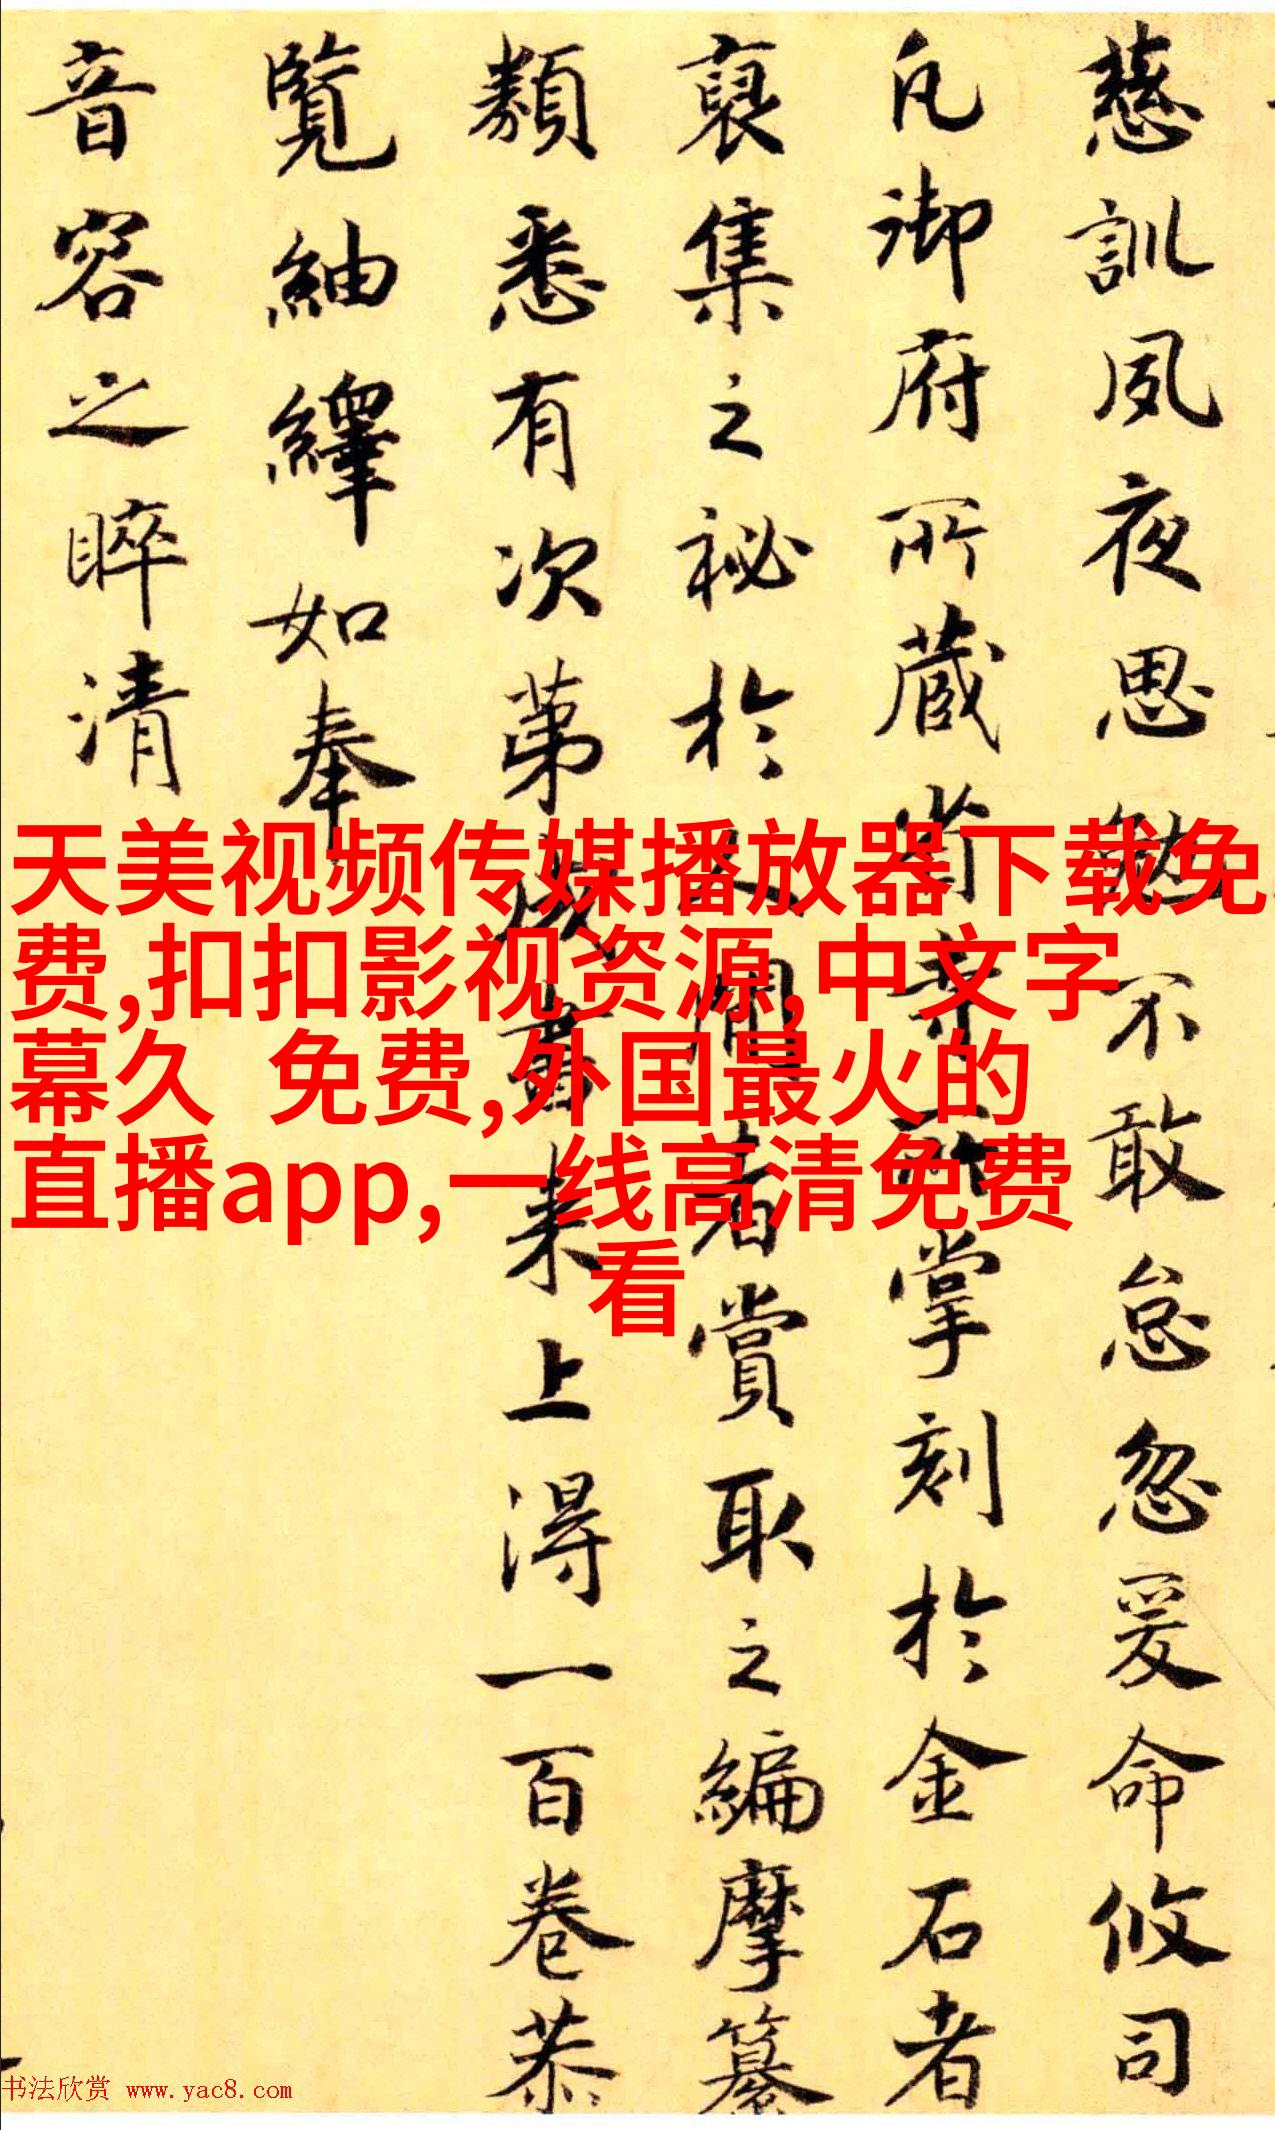 慈訓夙夜思勉不敢怠忽爰命攸司
凡御府所蔵省寺所掌刻於金石者
裒集之祕於人閒者賞取之編摩纂
類悉有次第成書来上得一百卷恭
覽紬繹如奉
音容之睟清
天美视频传媒播放器下载免
费,扣扣影视资源,中文字
幕久 免费,外国最火的
直播app,一线高清免费
看
书法欣赏 www.yac8.com